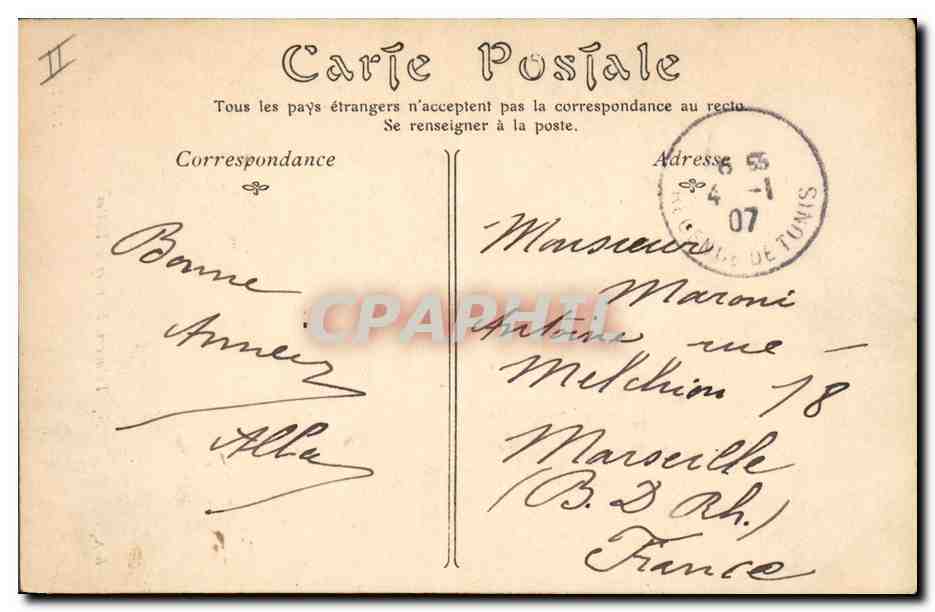 II
Carte Postale
Tous les pays étrangers n'acceptent pas la correspondance au recto.
Se renseigner à la poste.
Correspondance
Adresse
6 55
4 -1
07
REGENCE DE TUNIS
Bonne
Année
Alba
Monsieur
Maroni
Antoine rue -
Melchion 18
Marseille
(B. D Rh.)
France
CPAPHIL